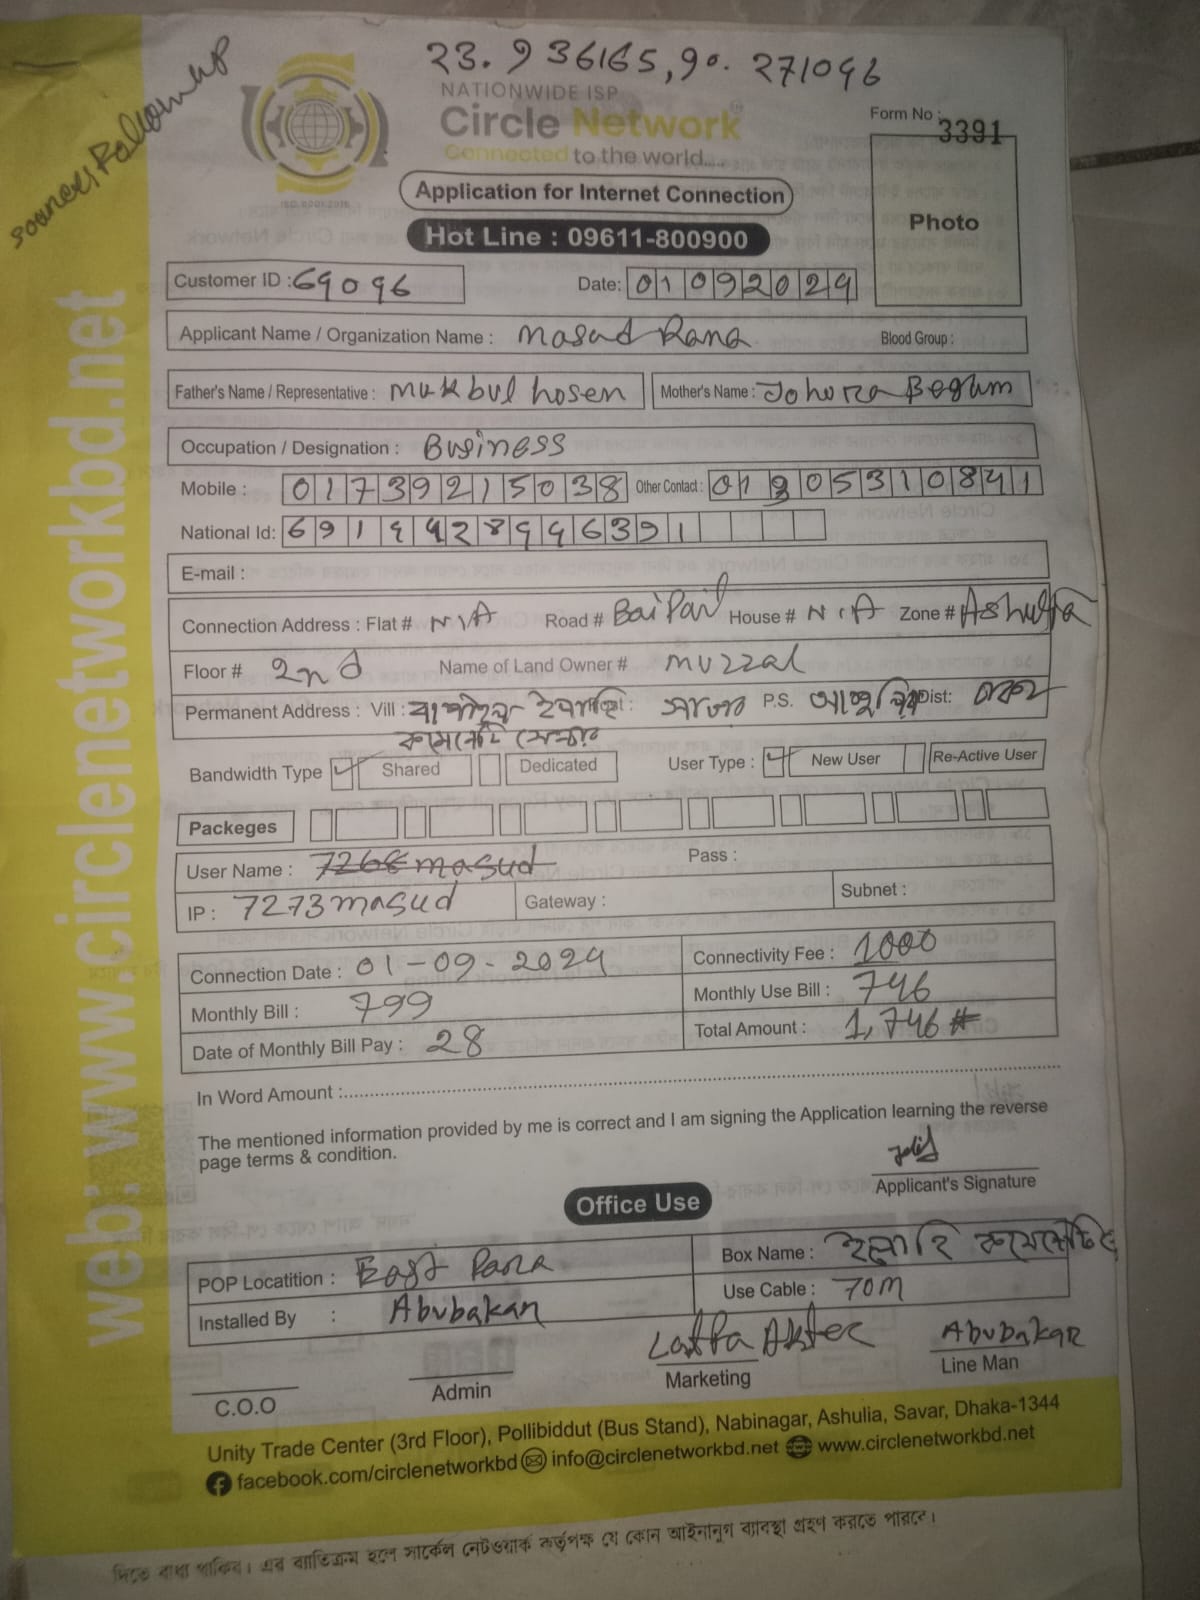 23.936165, 90.271096
NATIONWIDE ISP
Circle Network
Connected to the world....
Form No : 3391
Application for Internet Connection
Photo
Hot Line : 09611-800900
Customer ID : 69096
Date: 01092024
Applicant Name / Organization Name : Masud Rana
Blood Group :
Father's Name / Representative : Mukbul hosen
Mother's Name : Johora Begum
Occupation / Designation : Business
Mobile : 01739215038 Other Contact : 01905310841
National Id:
E-mail :
Connection Address : Flat # N/A Road # BaiPail House # N/A Zone # Ashulia
Floor # 2nd Name of Land Owner # muzzal
Permanent Address : Vill : P.S. Dist: ঢাকা
Bandwidth Type Shared Dedicated User Type : New User Re-Active User
Packeges
User Name : 7268masud Pass :
IP : 7273masud Gateway : Subnet :
Connection Date : 01-09-2024 Connectivity Fee : 1000
Monthly Bill : 799 Monthly Use Bill : 746
Date of Monthly Bill Pay : 28 Total Amount : 1,746 #
In Word Amount :
The mentioned information provided by me is correct and I am signing the Application learning the reverse
page terms & condition.
Applicant's Signature
Office Use
POP Locatition : East Para Box Name :
Installed By : Abubakar Use Cable : 70M
Akter Abubakar
C.O.O Admin Marketing Line Man
Unity Trade Center (3rd Floor), Pollibiddut (Bus Stand), Nabinagar, Ashulia, Savar, Dhaka-1344
facebook.com/circlenetworkbd info@circlenetworkbd.net www.circlenetworkbd.net
web: www.circlenetworkbd.net
দিতে বাধ্য থাকিব। এর ব্যতিক্রম হলে সার্কেল নেটওয়ার্ক কর্তৃপক্ষ যে কোন আইনানুগ ব্যবস্থা গ্রহণ করতে পারবে।